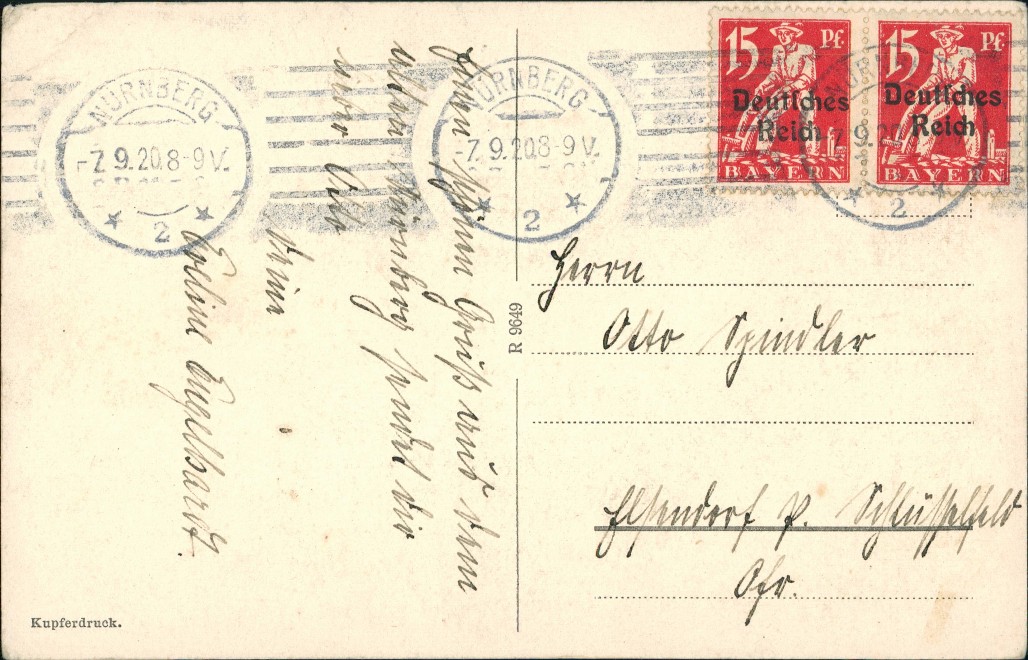 NÜRNBERG
-7.9.20.8-9V.
2
NÜRNBERG
-7.9.20.8-9V.
2
15 Pf.
Deutsches
Reich
BAYERN
15 Pf.
Deutsches
Reich
BAYERN
9.20
2
Einen schönen Gruß aus dem
alten Nürnberg sendet dir
Deine
Engelhardt.
R 9649
Herrn
Otto Spindler
Elsendorf p. Schlüsselfeld
Ofr.
Kupferdruck.